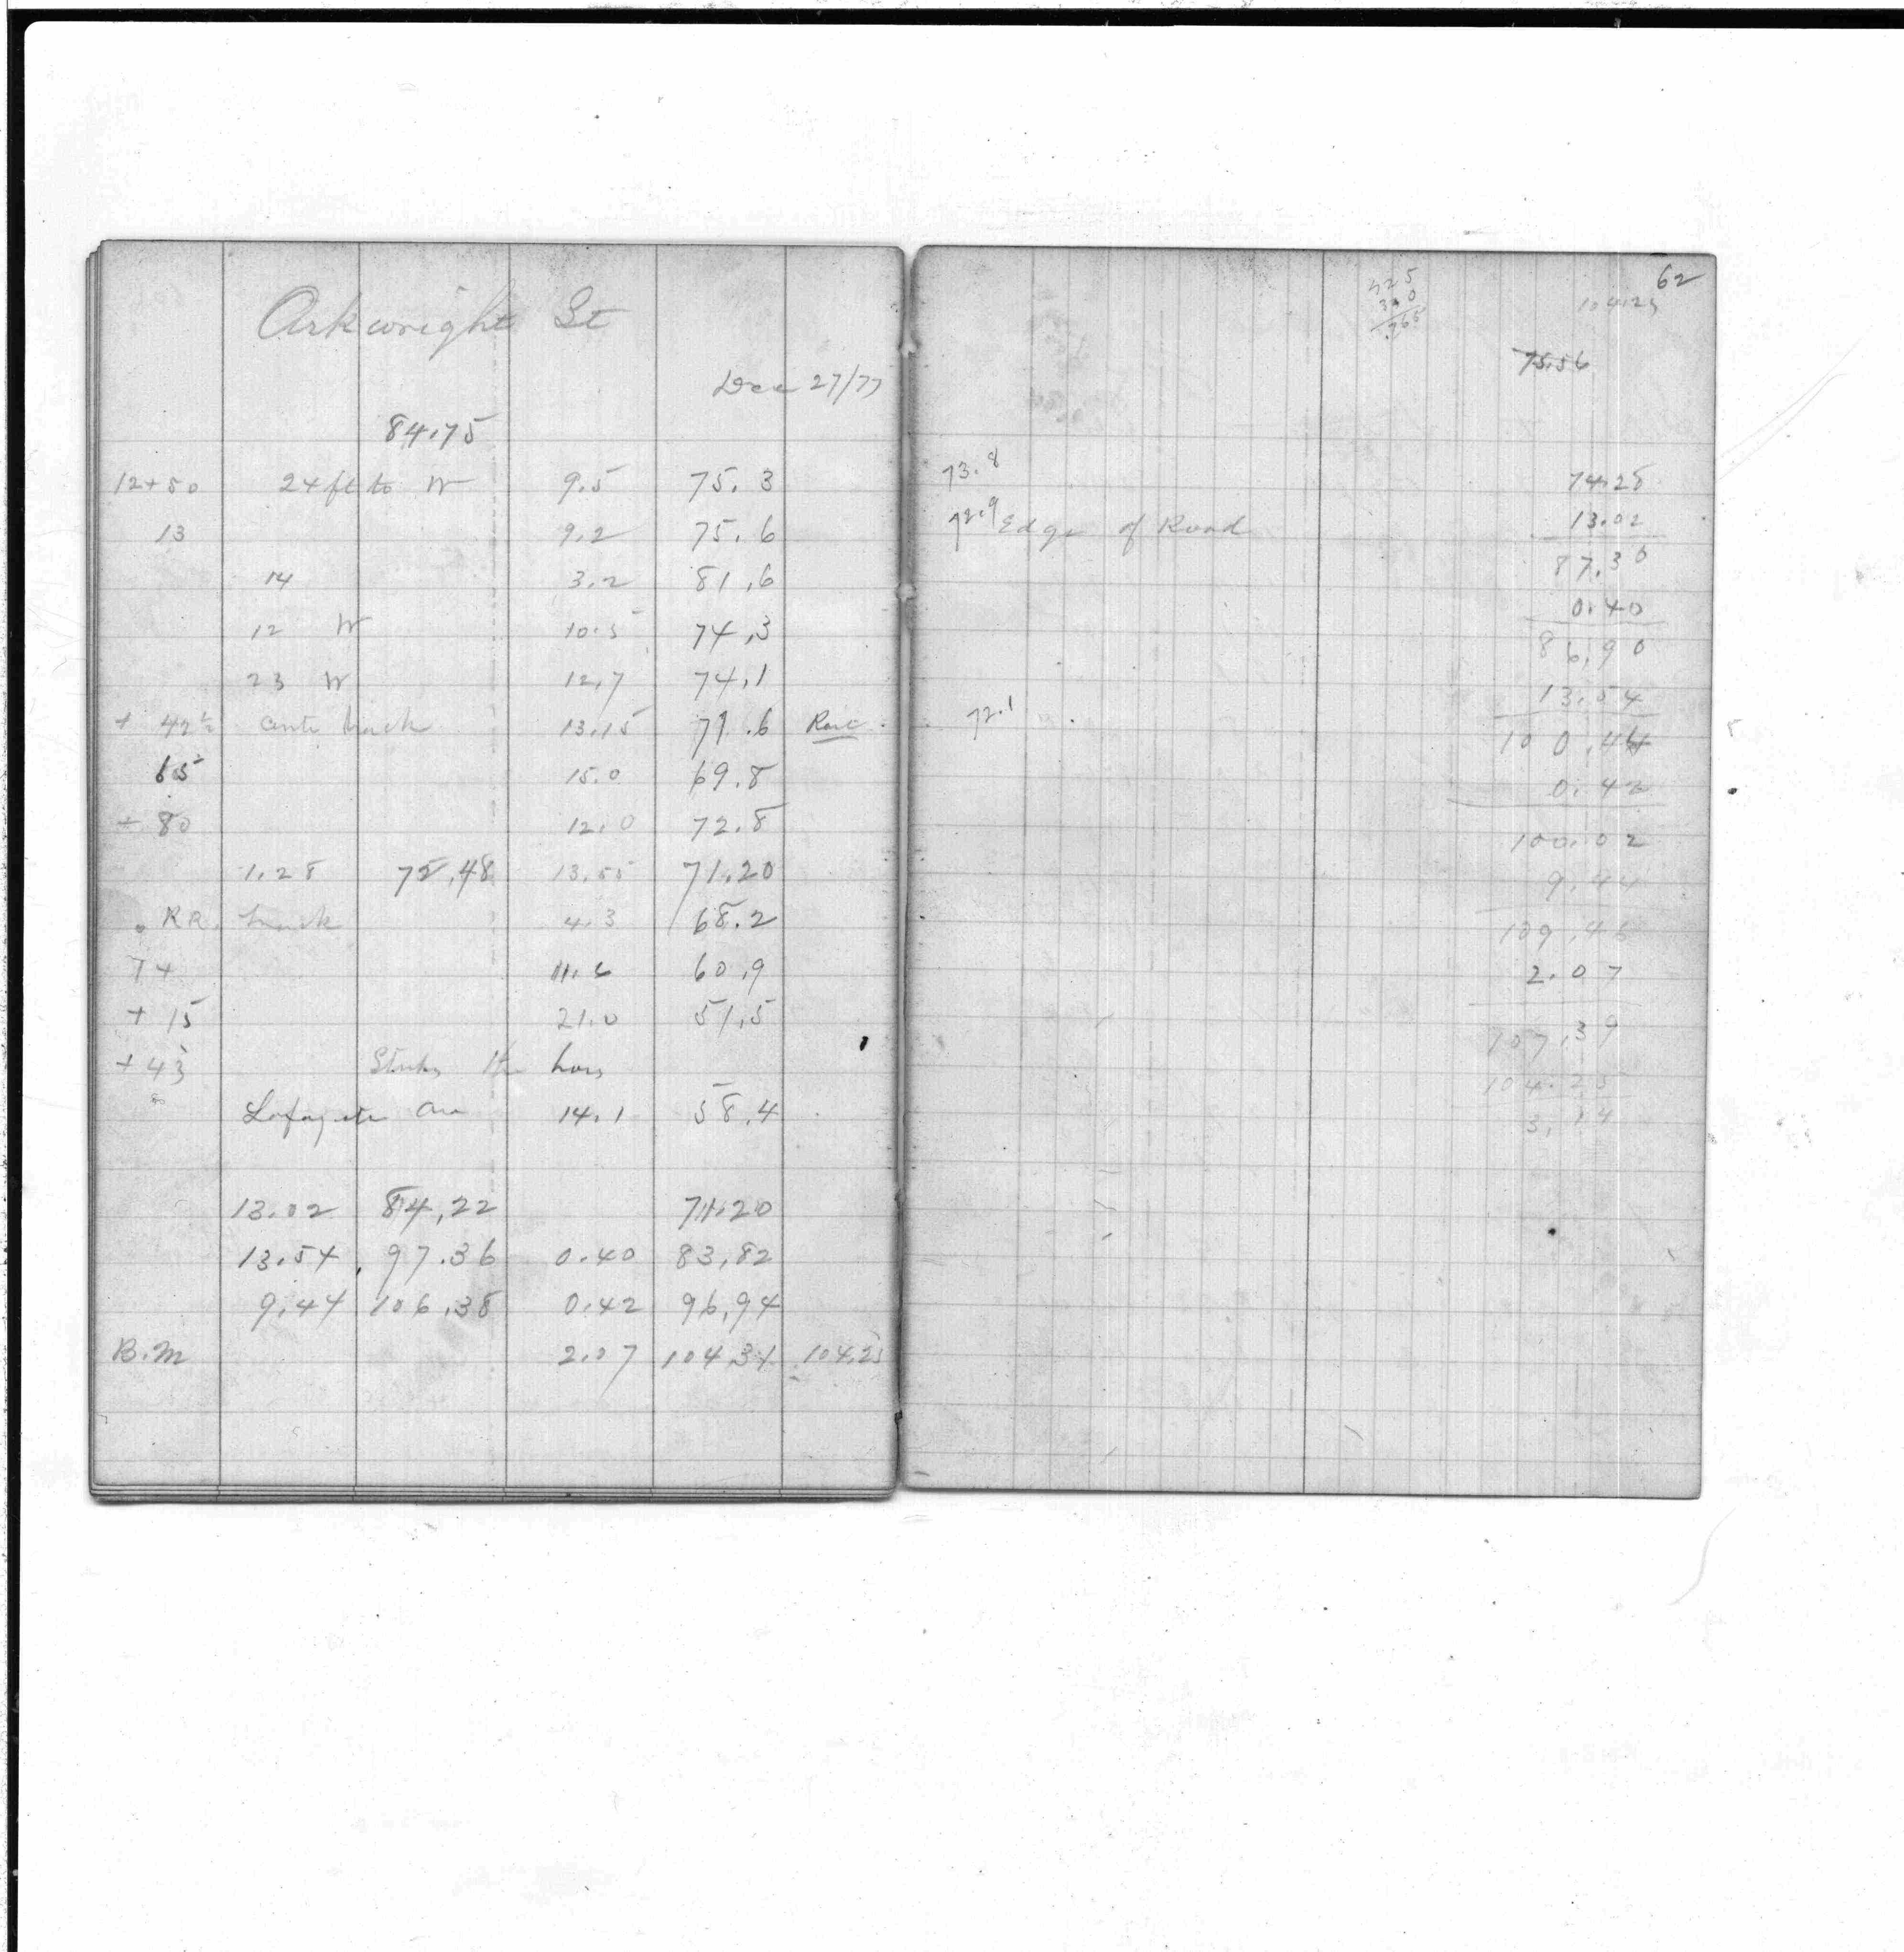 Arkwright St
Dec 27/77
84.75
12+50 24 ft to W 9.5 75.3
13 9.2 75.6
14 3.2 81.6
12 W 10.5 74.3
23 W 12.7 74.1
+ 42½ track 13.15 71.6
65 15.0 69.8
+ 80 12.0 72.8
1.28 72.48 13.55 71.20
RR. track 4.3 68.2
74 11.6 60.9
+ 15 21.0 51.5
+ 43
Lafayette Ave 14.1 58.4
13.02 84.22 71.20
13.54 97.36 0.40 83.82
9.44 106.38 0.42 96.94
B.M 2.07 104.31 104.25
62
104.25
75.56
73.8
72.9 Edge of Road
72.1
74.28
13.02
87.30
0.40
86.90
13.54
100.44
0.42
100.02
9.44
109.46
2.07
107.39
104.25
3.14